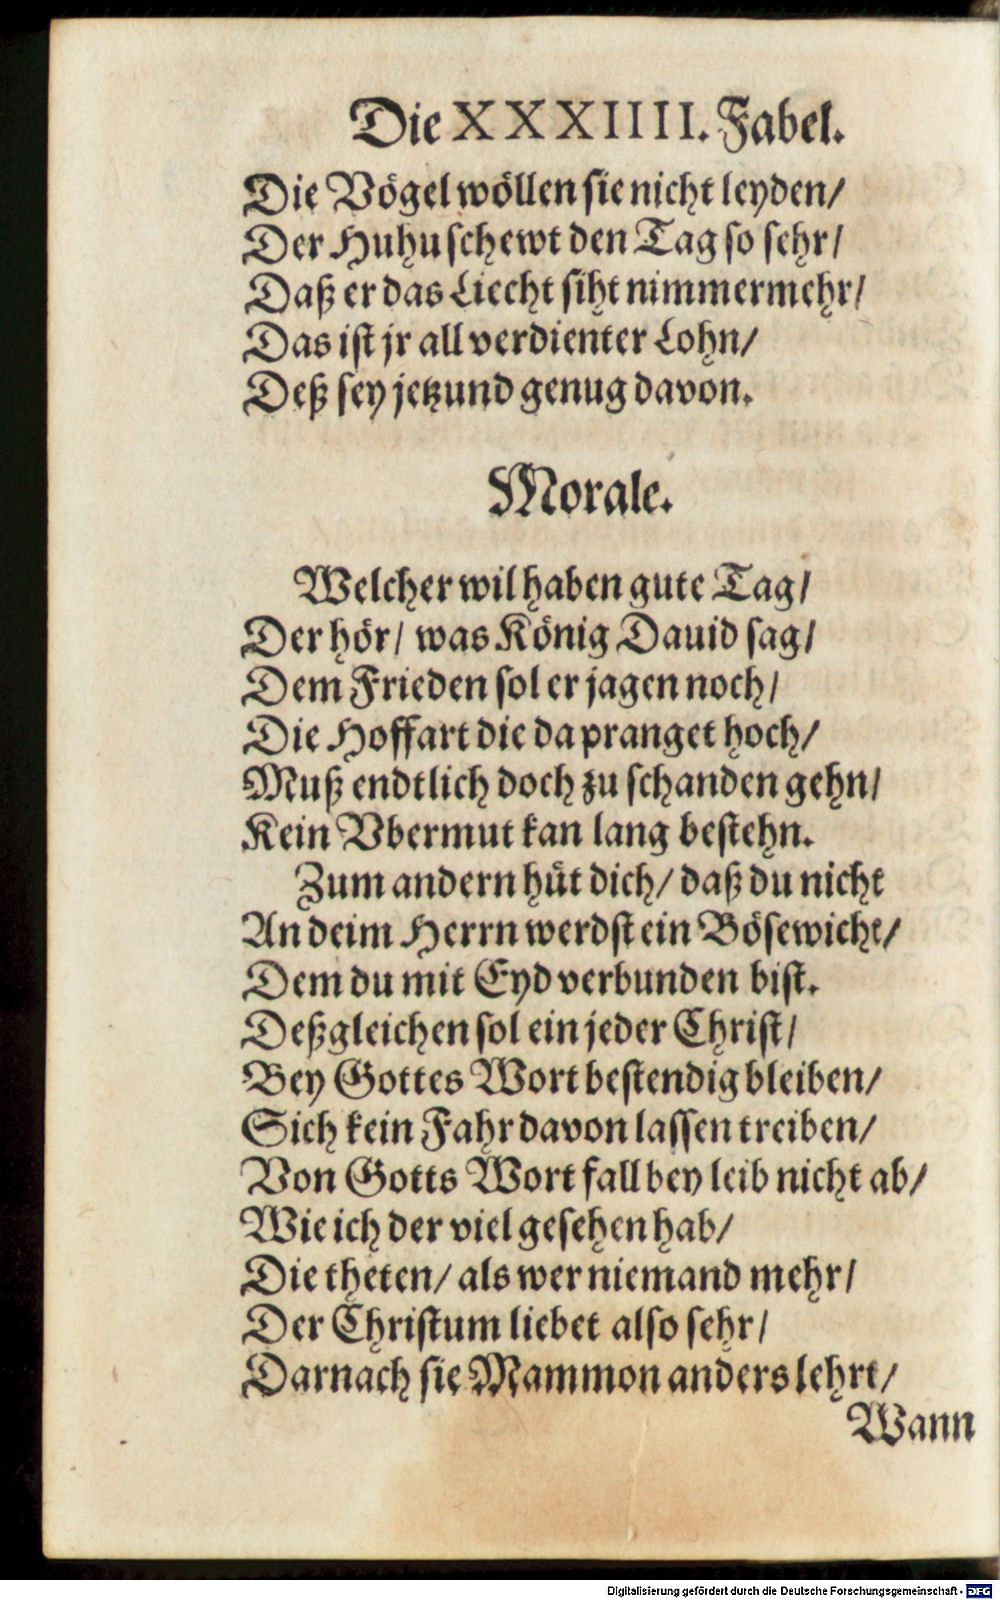 Die XXXIIII. Fabel.
Die Vögel wöllen sie nicht leyden/
Der Huhu schewt den Tag so sehr/
Daß er das Liecht siht nimmermehr/
Das ist jr all verdienter Lohn/
Deß sey jetzund genug davon.
Morale.
Welcher wil haben gute Tag/
Der hör/ was König Dauid sag/
Dem Frieden sol er jagen noch/
Die Hoffart die da pranget hoch/
Muß endtlich doch zu schanden gehn/
Kein Vbermut kan lang bestehn.
Zum andern hüt dich/ daß du nicht
An deim Herrn werdst ein Bösewicht/
Dem du mit Eyd verbunden bist.
Deßgleichen sol ein jeder Christ/
Bey Gottes Wort bestendig bleiben/
Sich kein Fahr davon lassen treiben/
Von Gotts Wort fall bey leib nicht ab/
Wie ich der viel gesehen hab/
Die theten/ als wer niemand mehr/
Der Christum liebet also sehr/
Darnach sie Mammon anders lehrt/
Wann
Digitalisierung gefördert durch die Deutsche Forschungsgemeinschaft - DFG